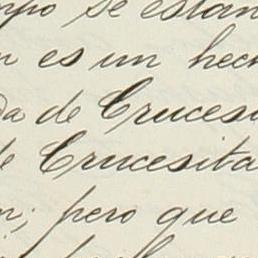 mpo se estan
n es un hech
da de Cruces
de Crucesita
n; pero que